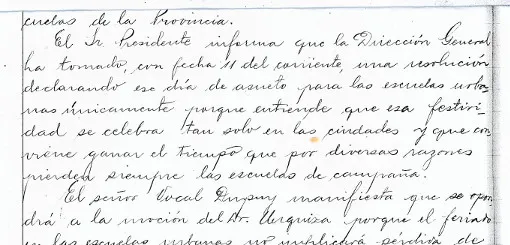 cuelas de la Provincia.
El Sr. Presidente informa que la Dirección General
ha tomado, con fecha 11 del corriente, una resolución
declarando ese día de asueto para las escuelas urba
nas únicamente porque entiende que esa festivi-
dad se celebra tan solo en las ciudades y que con
viene ganar el tiempo que por diversas razones
pierden siempre las escuelas de campaña.
El señor Vocal Dupuy manifiesta que se opon
drá a la moción del Dr. Urquiza porque el feriado
en las escuelas urbanas no implicará pérdida de